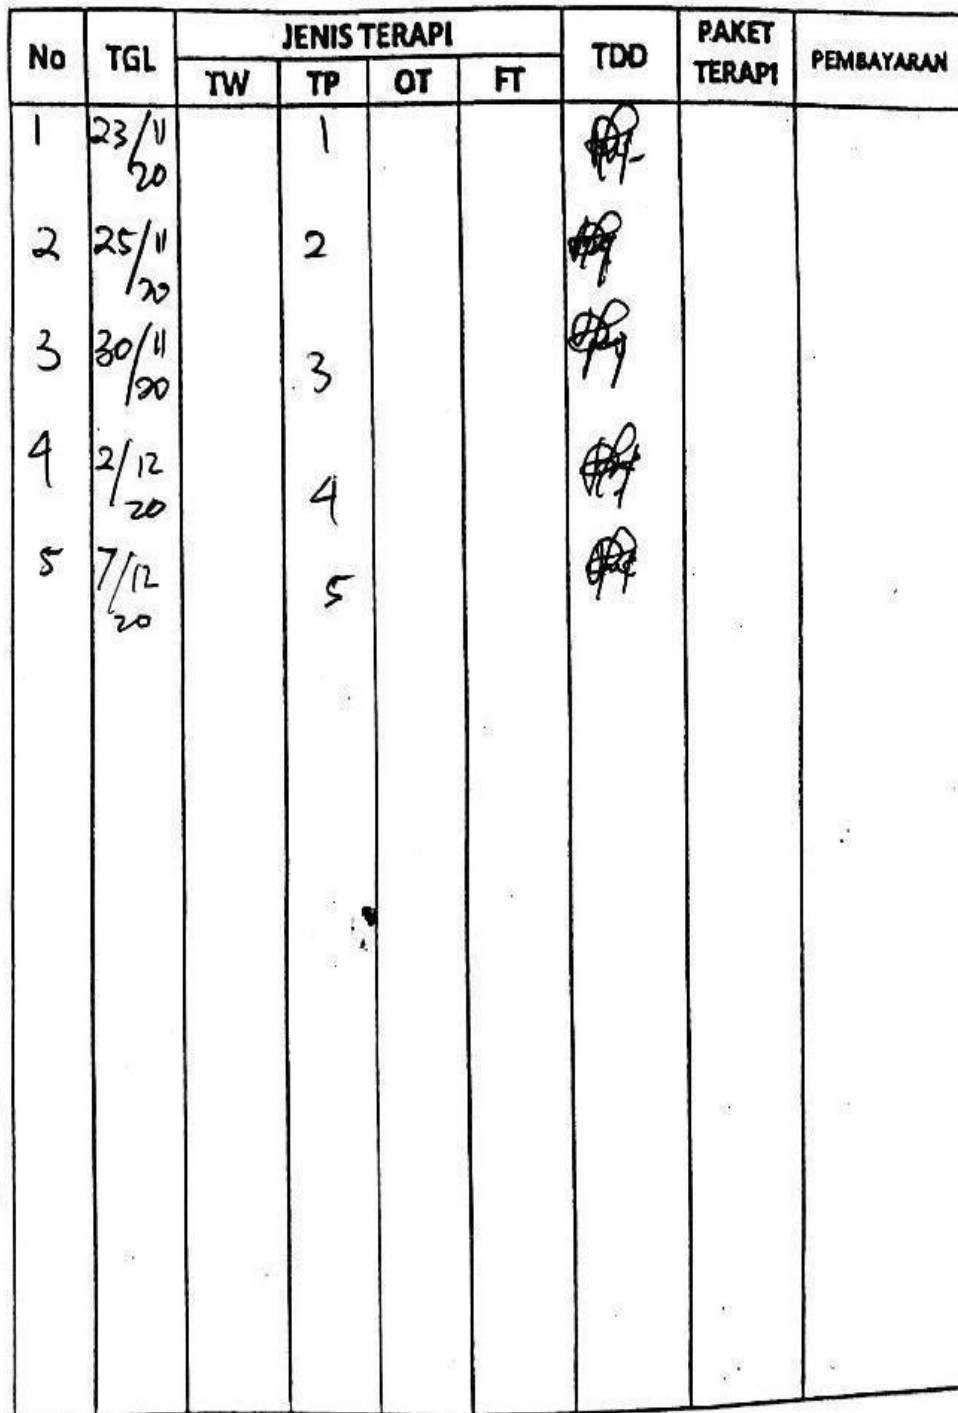 No TGL JENIS TERAPI TDD PAKET TERAPI PEMBAYARAN
TW TP OT FT
1 23/11/20 1
2 25/11/20 2
3 30/11/20 3
4 2/12/20 4
5 7/12/20 5